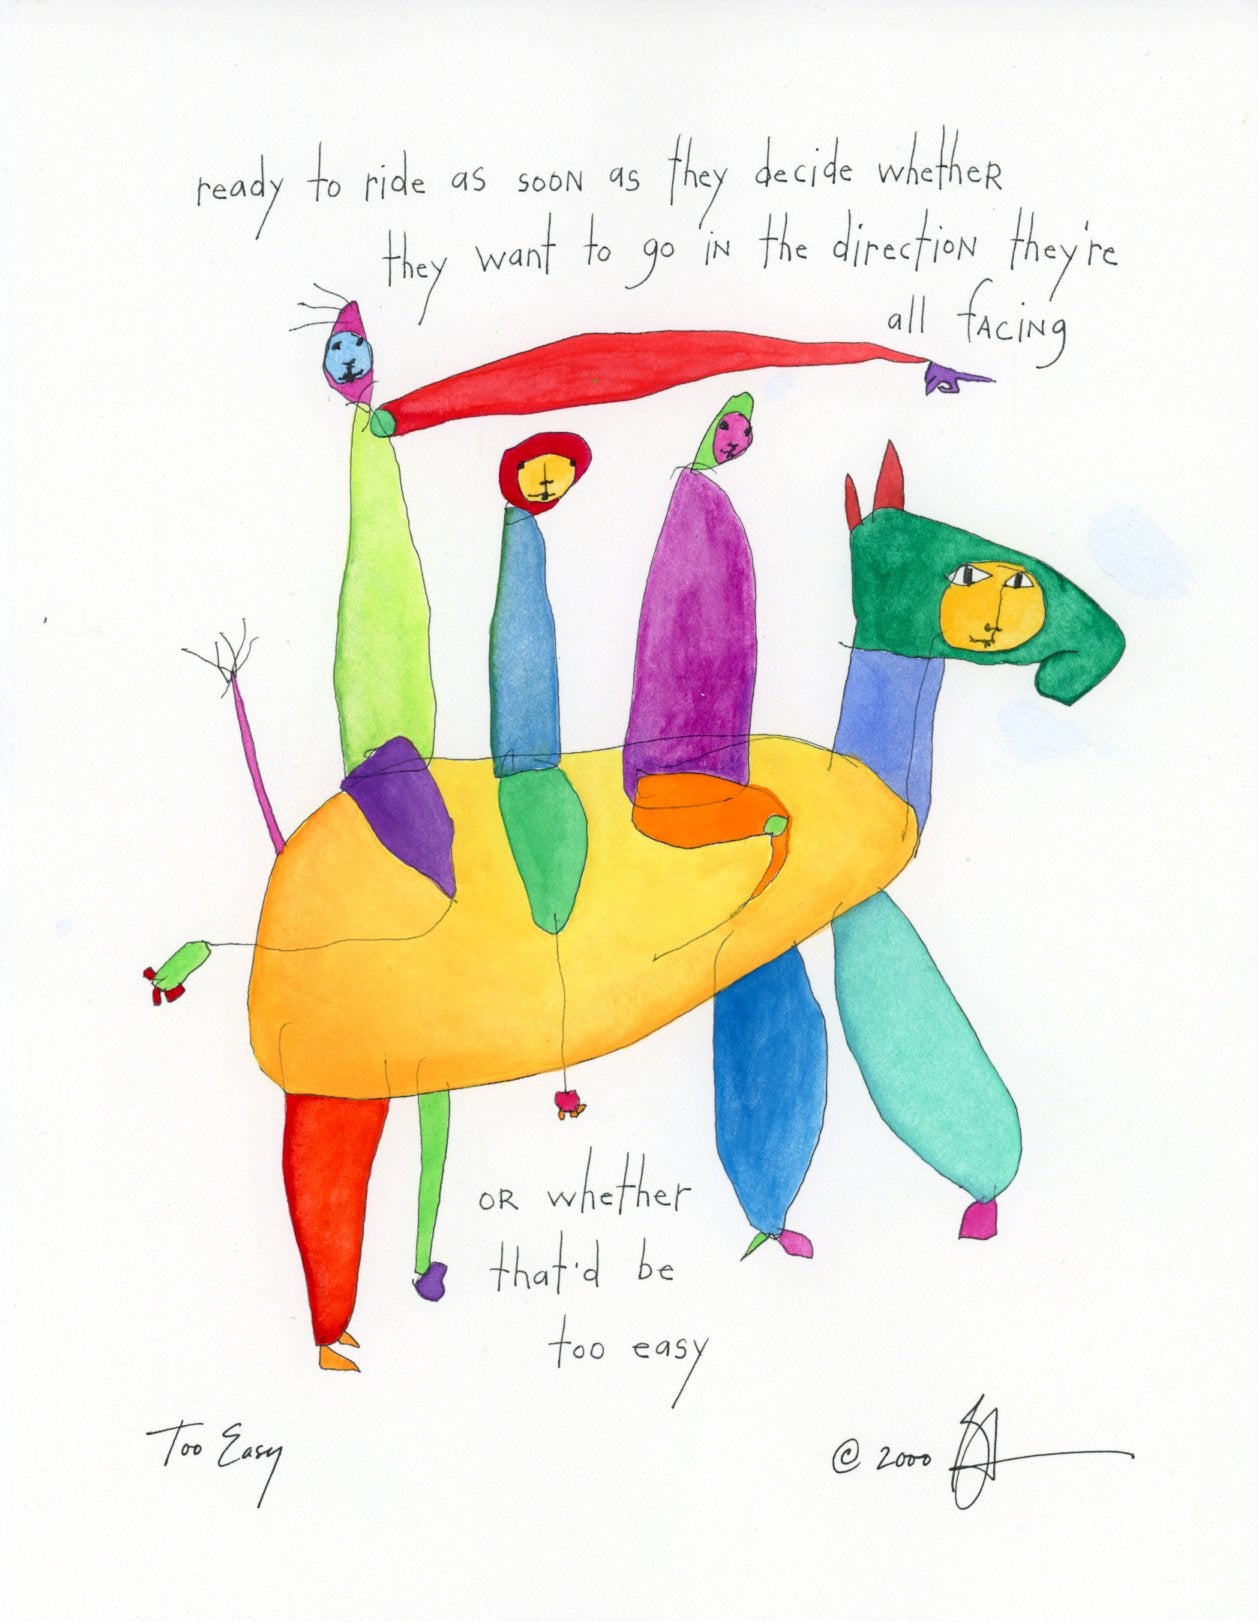 ready to ride as soon as they decide whether
they want to go in the direction they're
all facing
or whether
that'd be
too easy
Too Easy
© 2000